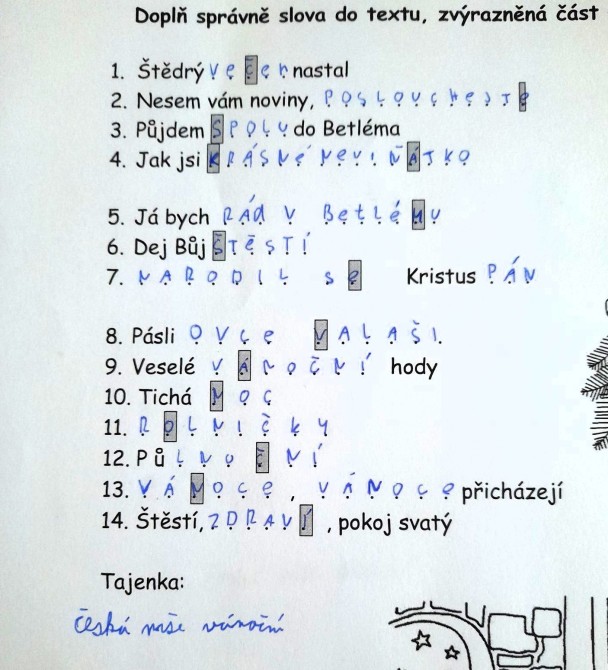 Doplň správně slova do textu, zvýrazněná část
1. Štědrý večer nastal
2. Nesem vám noviny, POSLOUCHEJTE
3. Půjdem SPOLU do Betléma
4. Jak jsi KRÁSNÉ NEVIŇÁTKO
5. Já bych RÁD V BetléMU
6. Dej Bůj ŠTĚSTÍ
7. NARODIL SE Kristus PÁN
8. Pásli OVCE VALAŠI.
9. Veselé VÁNOČNÍ hody
10. Tichá NOC
11. ROLNIČKY
12. PůLNOČNÍ
13. VÁNOCE, VÁNOCE přicházejí
14. Štěstí, ZDRAVÍ, pokoj svatý
Tajenka:
česká mše vánoční